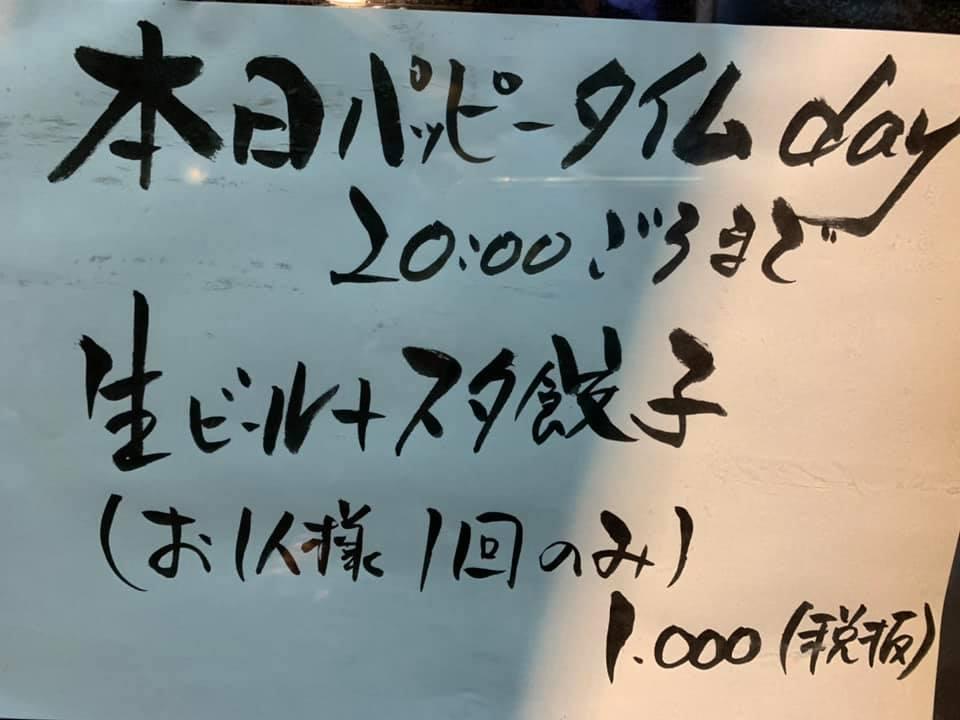 本日パッピータイムday
20:00ごろまで
生ビール+スタ餃子
(お1人様1回のみ)
1.000(税抜)